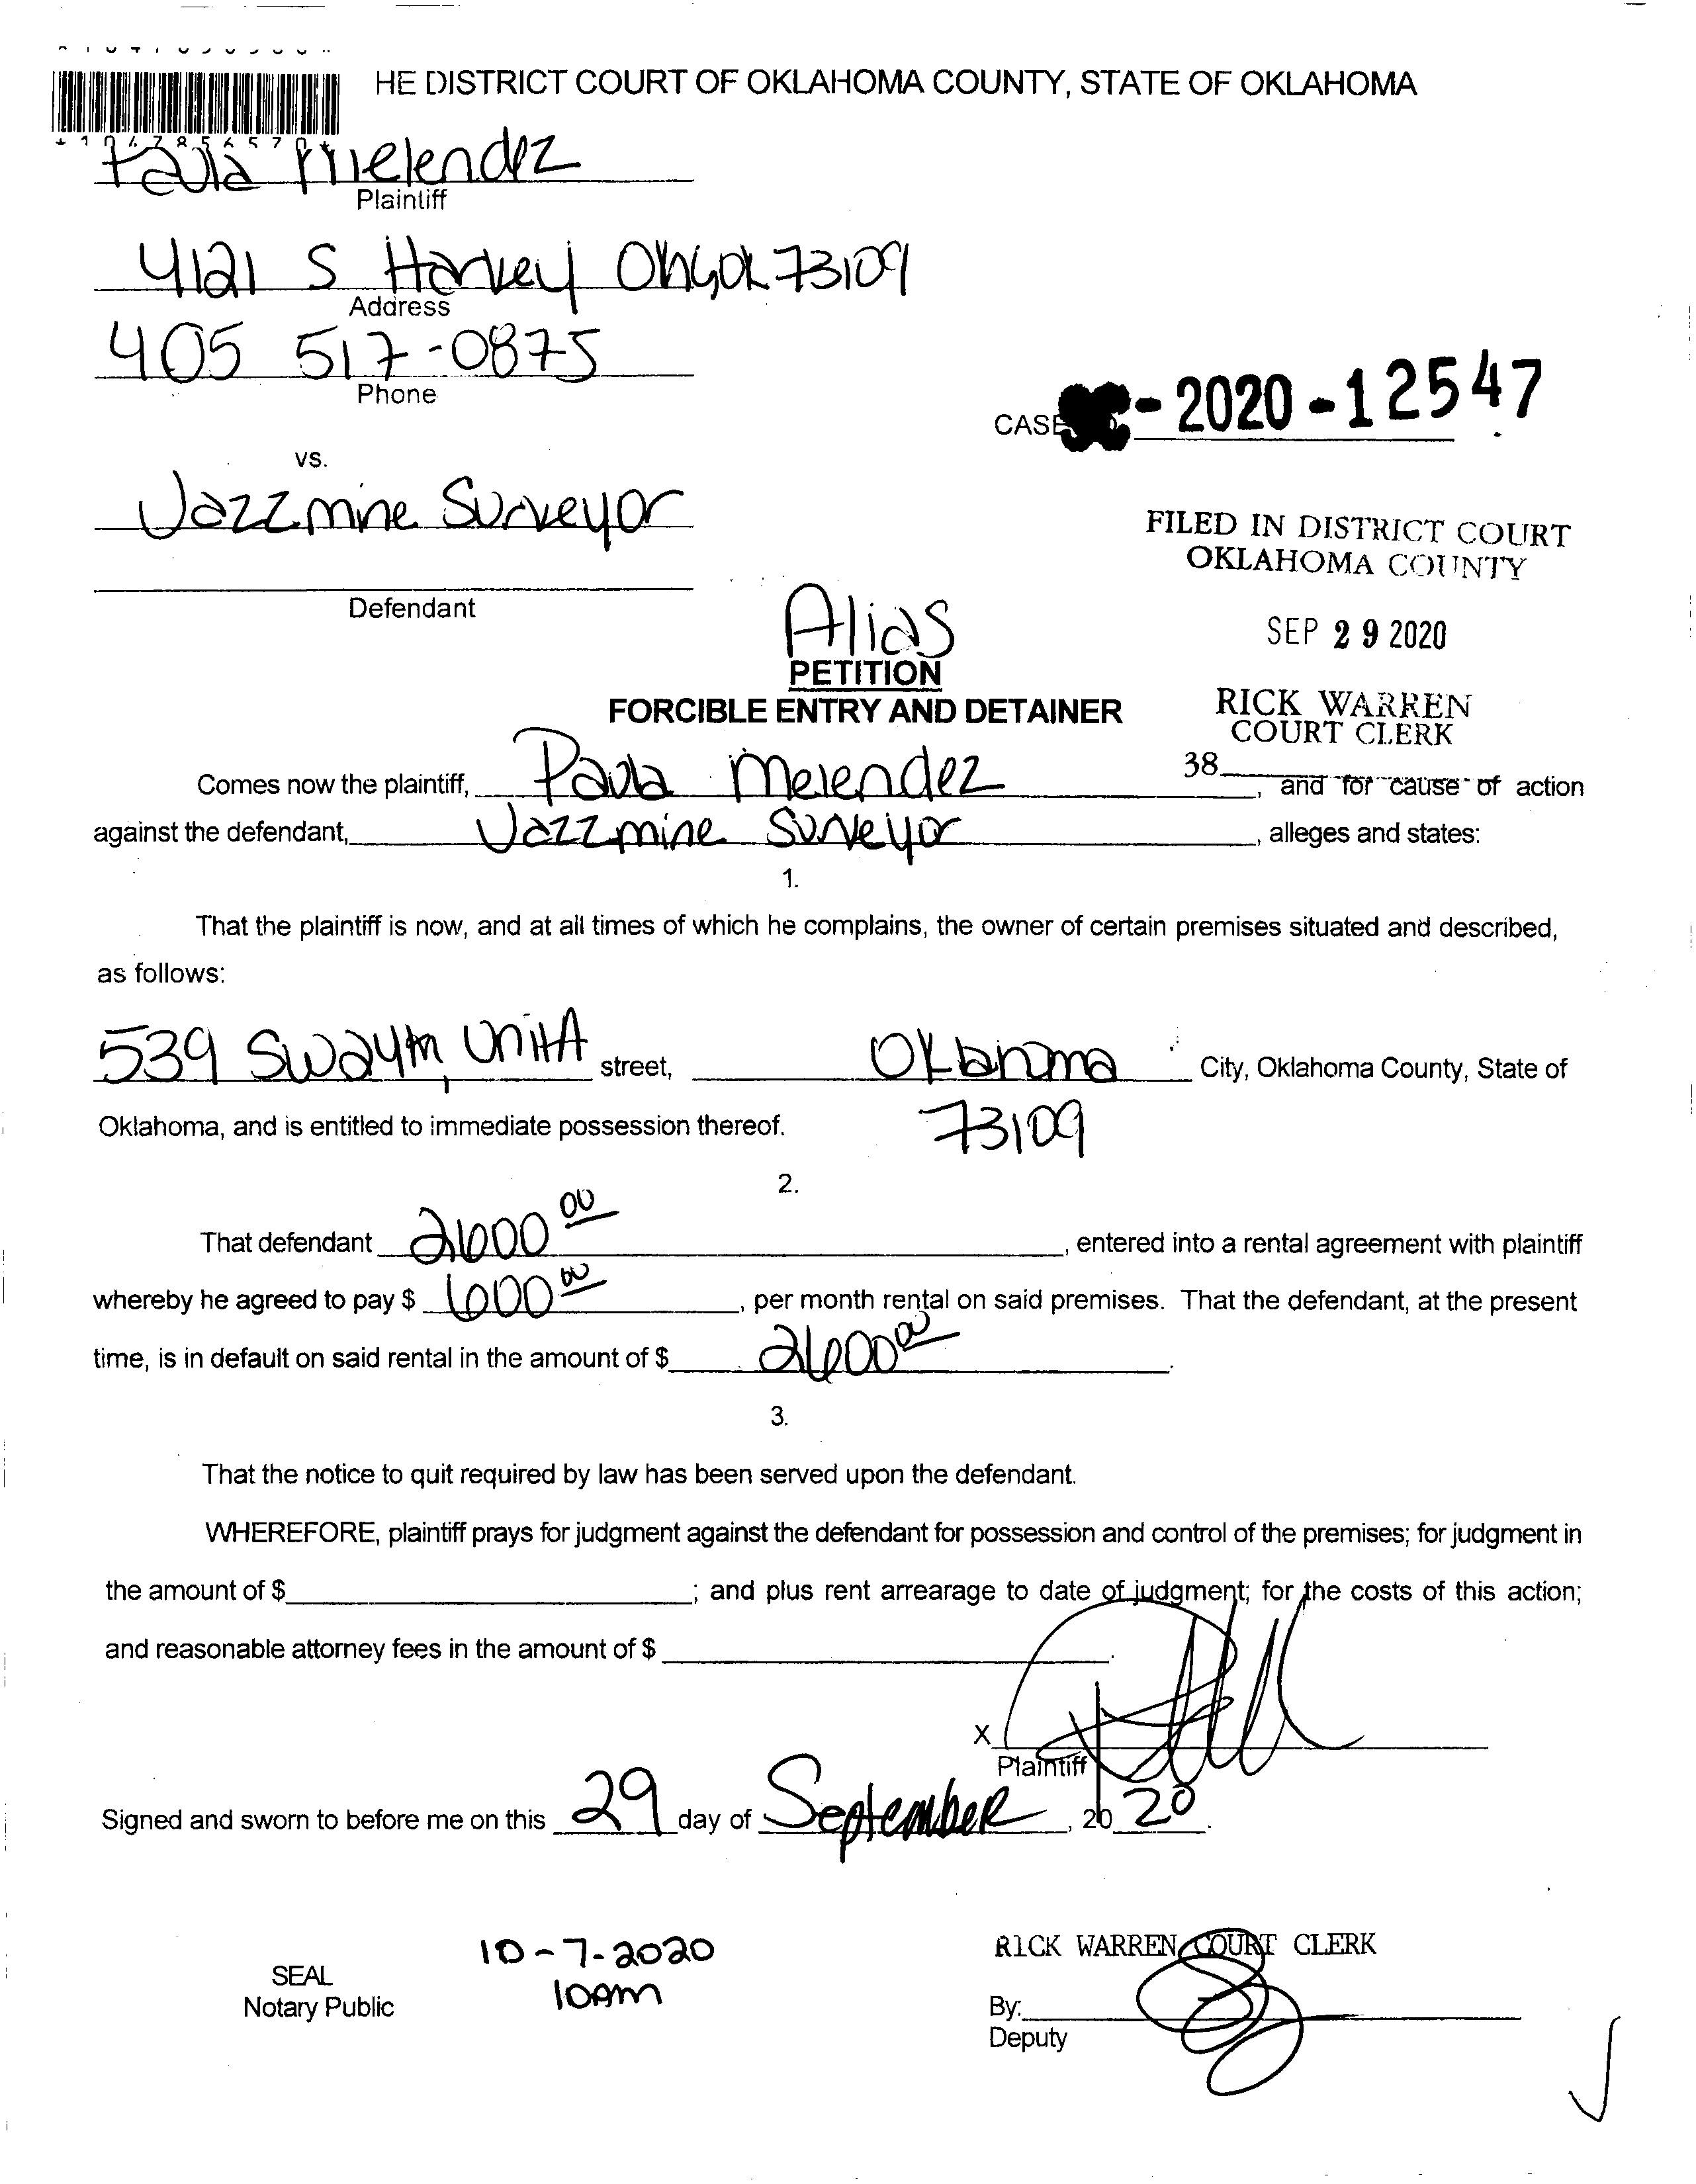 HE DISTRICT COURT OF OKLAHOMA COUNTY, STATE OF OKLAHOMA
*1047856570*
Paula Melendez
Plaintiff
4121 S Harvey OKCOK 73109
Address
405 517-0875
Phone
CASE - 2020 - 12547
vs.
Jazzmine Surveyor
FILED IN DISTRICT COURT
OKLAHOMA COUNTY
Defendant
SEP 29 2020
Alias
PETITION
RICK WARREN
FORCIBLE ENTRY AND DETAINER
COURT CLERK
38
Comes now the plaintiff, Paula Melendez, and for cause of action
against the defendant, Jazzmine Surveyor, alleges and states:
1.
That the plaintiff is now, and at all times of which he complains, the owner of certain premises situated and described,
as follows:
539 SW 24th, Unit A street, Oklahoma City, Oklahoma County, State of
Oklahoma, and is entitled to immediate possession thereof. 73109
2.
That defendant 2600 00, entered into a rental agreement with plaintiff
whereby he agreed to pay $ 600 00, per month rental on said premises. That the defendant, at the present
time, is in default on said rental in the amount of $ 2600 00.
3.
That the notice to quit required by law has been served upon the defendant.
WHEREFORE, plaintiff prays for judgment against the defendant for possession and control of the premises; for judgment in
the amount of $ ; and plus rent arrearage to date of judgment; for the costs of this action;
and reasonable attorney fees in the amount of $ .
X
Plaintiff
Signed and sworn to before me on this 29 day of September, 20 20.
10-7-2020
RICK WARREN COURT CLERK
SEAL
10am
Notary Public
By:
Deputy